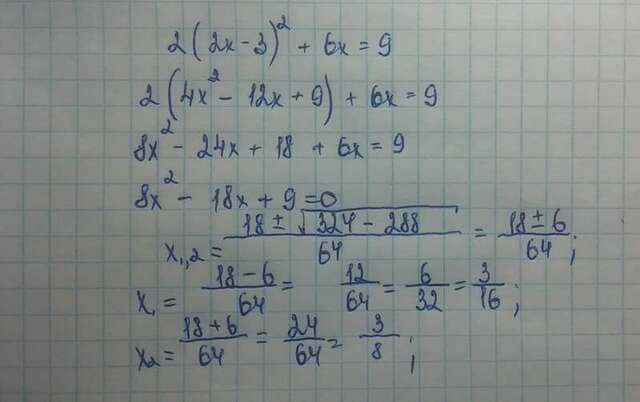 2(2x-3)² + 6x = 9
2(4x² - 12x + 9) + 6x = 9
8x² - 24x + 18 + 6x = 9
8x² - 18x + 9 = 0
x₁,₂ = (18 ± √(324 - 288))/64 = (18 ± 6)/64;
x₁ = (18 - 6)/64 = 12/64 = 6/32 = 3/16;
x₂ = (18 + 6)/64 = 24/64 = 3/8;